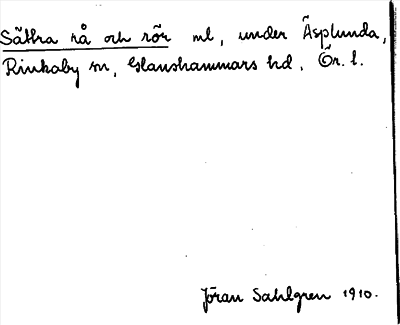 Sättra rå och rör ml, under Äsplunda,
Rinkaby sn, Glanshammars hd, Ör. l.
Jöran Sahlgren 1910.